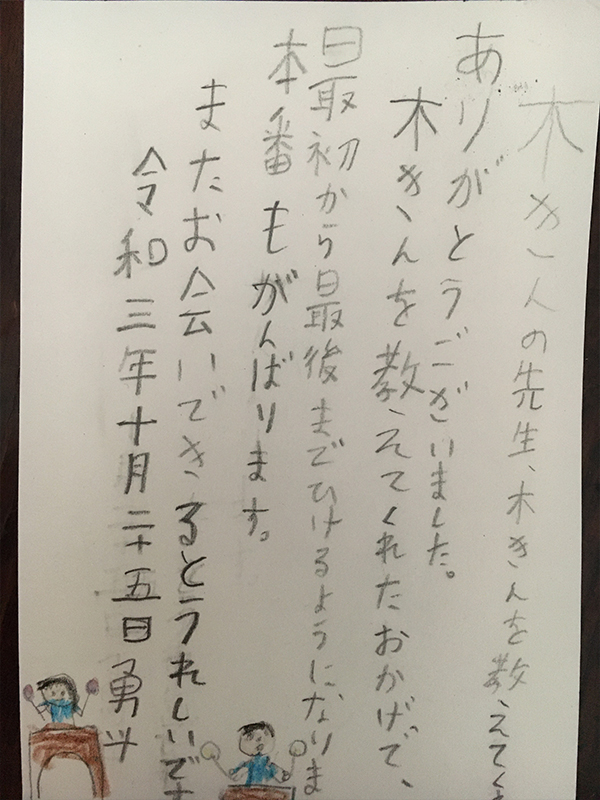 木きんの先生、木きんを教えてく
ありがとうございました。
木きんを教えてくれたおかげで、
最初から最後までひけるようになりま
本番もがんばります。
またお会いできるとうれしいです
令和三年十月二十五日勇斗